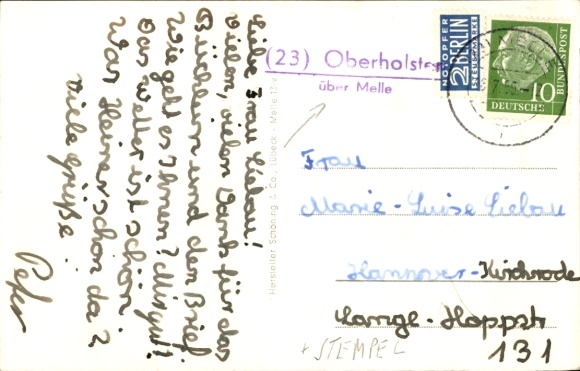 Liebe Frau Liebau!
Vielen, vielen Dank für das
Büchlein und den Brief.
Wie geht es Ihnen? Mir gut!
Das Wetter ist schön.
War Heiner schon da?
Viele Grüße.
Peter
Hersteller Schöning & Co., Lübeck - Melle 12
(23) Oberholsten
über Melle
NOTOPFER
2 BERLIN
STEUERMARKE
10
DEUTSCHE
BUNDESPOST
Frau
Marie-Luise Liebau
Hannover-Kirchrode
Lange-Hoppstr
131
+ STEMPEL